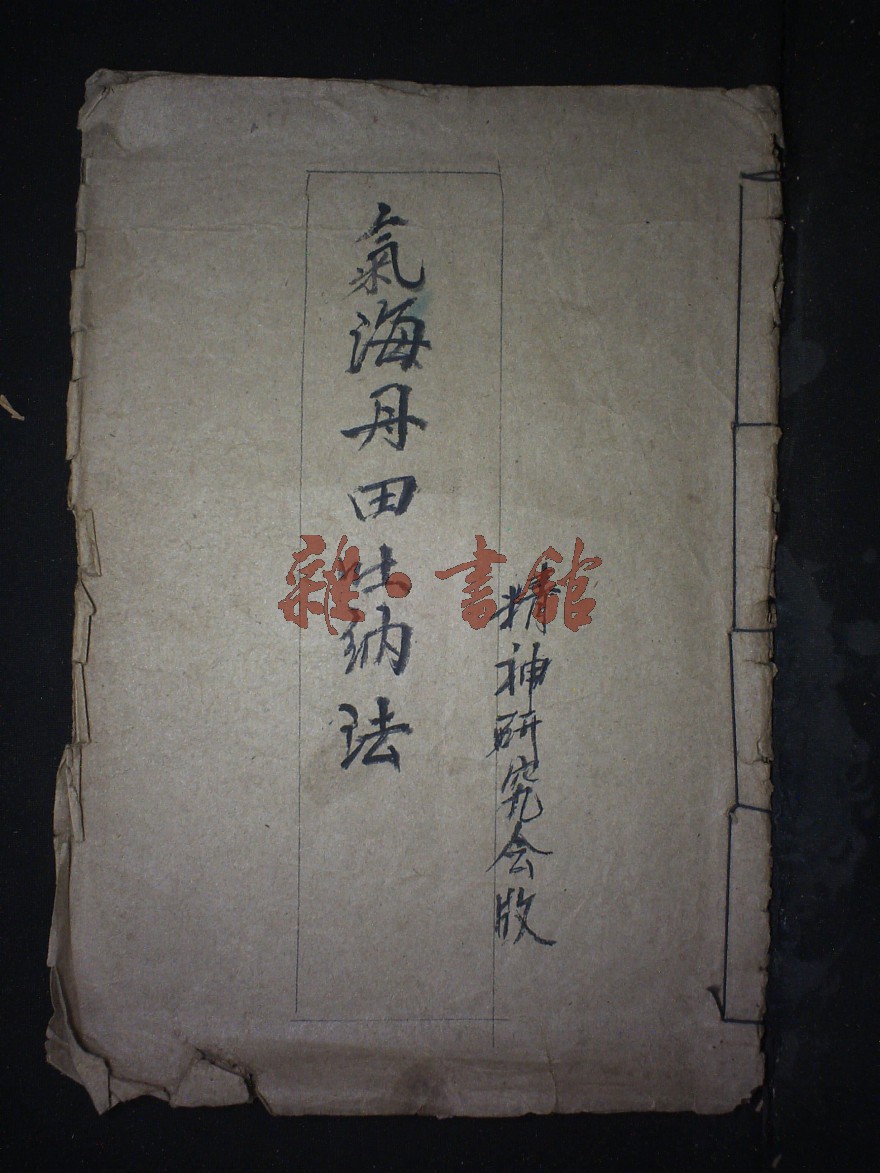 精神研究会版
氣海丹田吐纳法
雜·書館